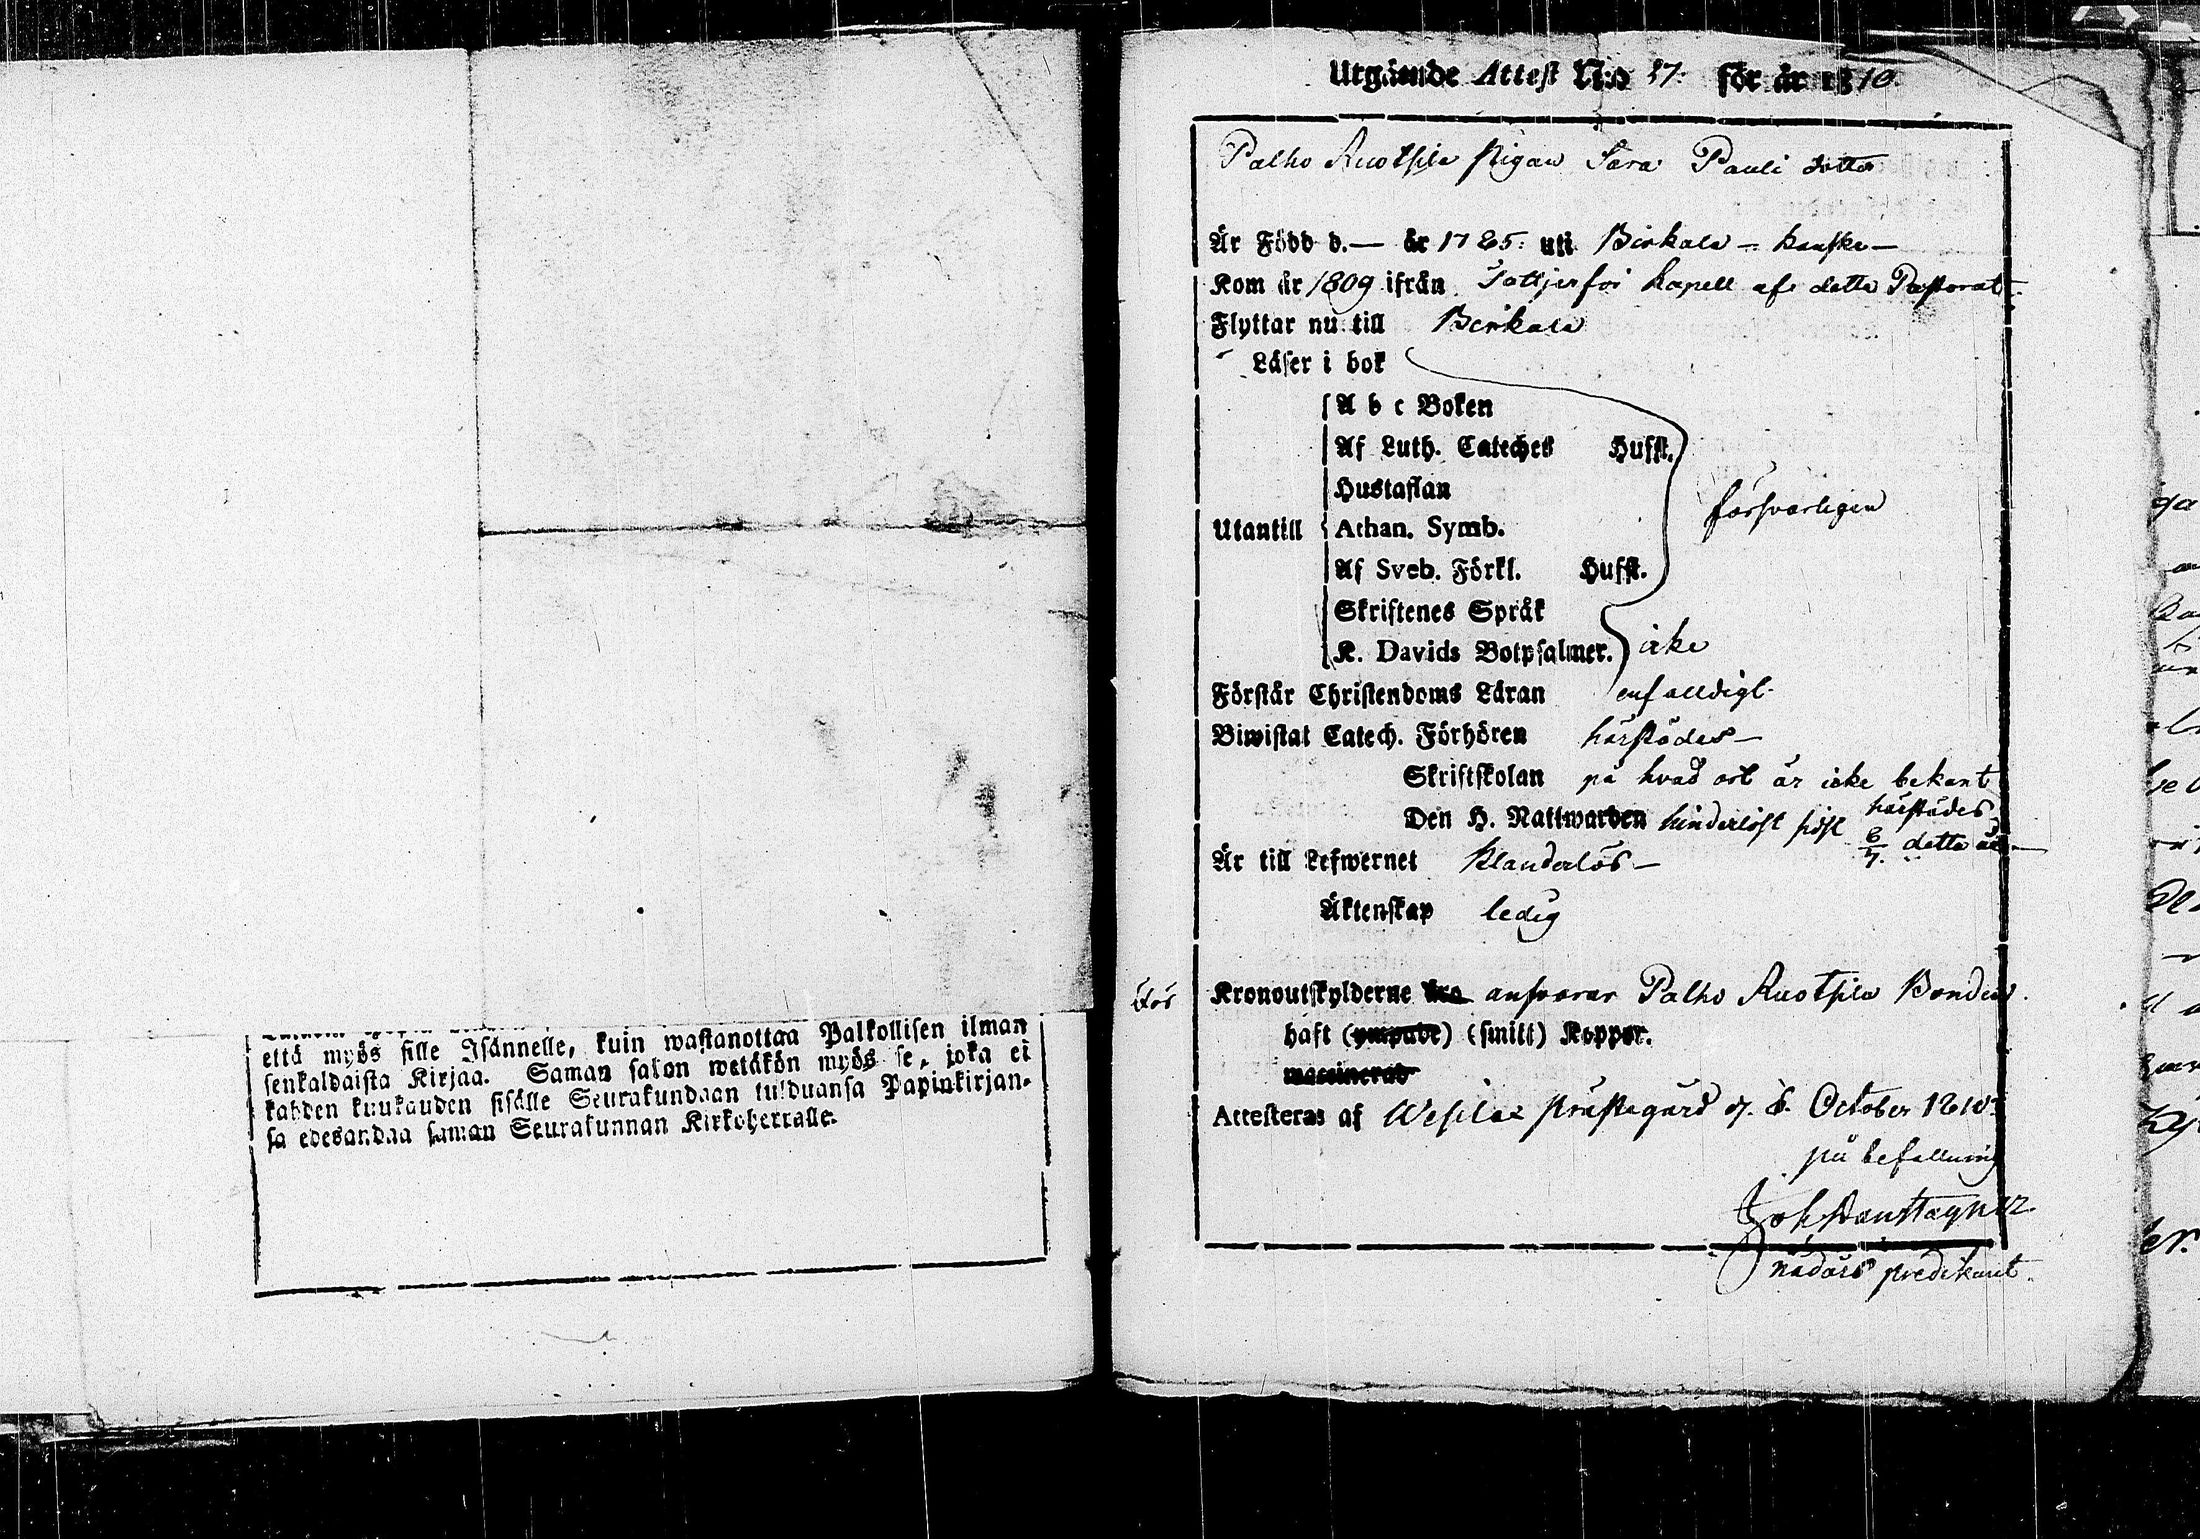 että myös sille Isännelle, kuin wastanottaa Palkollisen ilman
senkaldaista Kirjaa. Saman sakon wetäkön myös se, joka ei
kahden kuukauden sisälle Seurakundaan tulduansa Papinkirjan-
sa edesandaa saman Seurakunnan Kirkoherralle.
Utgående Attest N:o 57. för år 1810.
Palho Ruotsila pigan Sara Pauli dotter
Är Född d. — år 1785: uti Birkala - kanske -
Kom år 1809 ifrån kapell af detta Pastorat.
Flyttar nu till Birkala
Läser i bok
A b c Boken
Af Luth. Cateches Hufst.
Hustaflan
försvarligen
Utantill Athan. Symb.
Af Sveb. Förkl. Hufst.
Skriftenes Språk
K. Davids Botpsalmer. icke
Förstår Christendoms Läran enfalldigt.
Biwistat Catech. Förhören härstädes —
Skriftskolan på hvad ort är icke bekant
Den H. Nattwarden hinderlöst sidst härstädes detta år —
Är till Lefwernet Klanderlös —
Äktenskap ledig
För Kronoutskylderne ansvarar Palho Ruotsila Bonden.
haft (ympade) (smitt) Koppor.
waccinerad
Attesteras af Wesilax prästegård d. 8. October 1810:
på befallning
nådårs predikant.